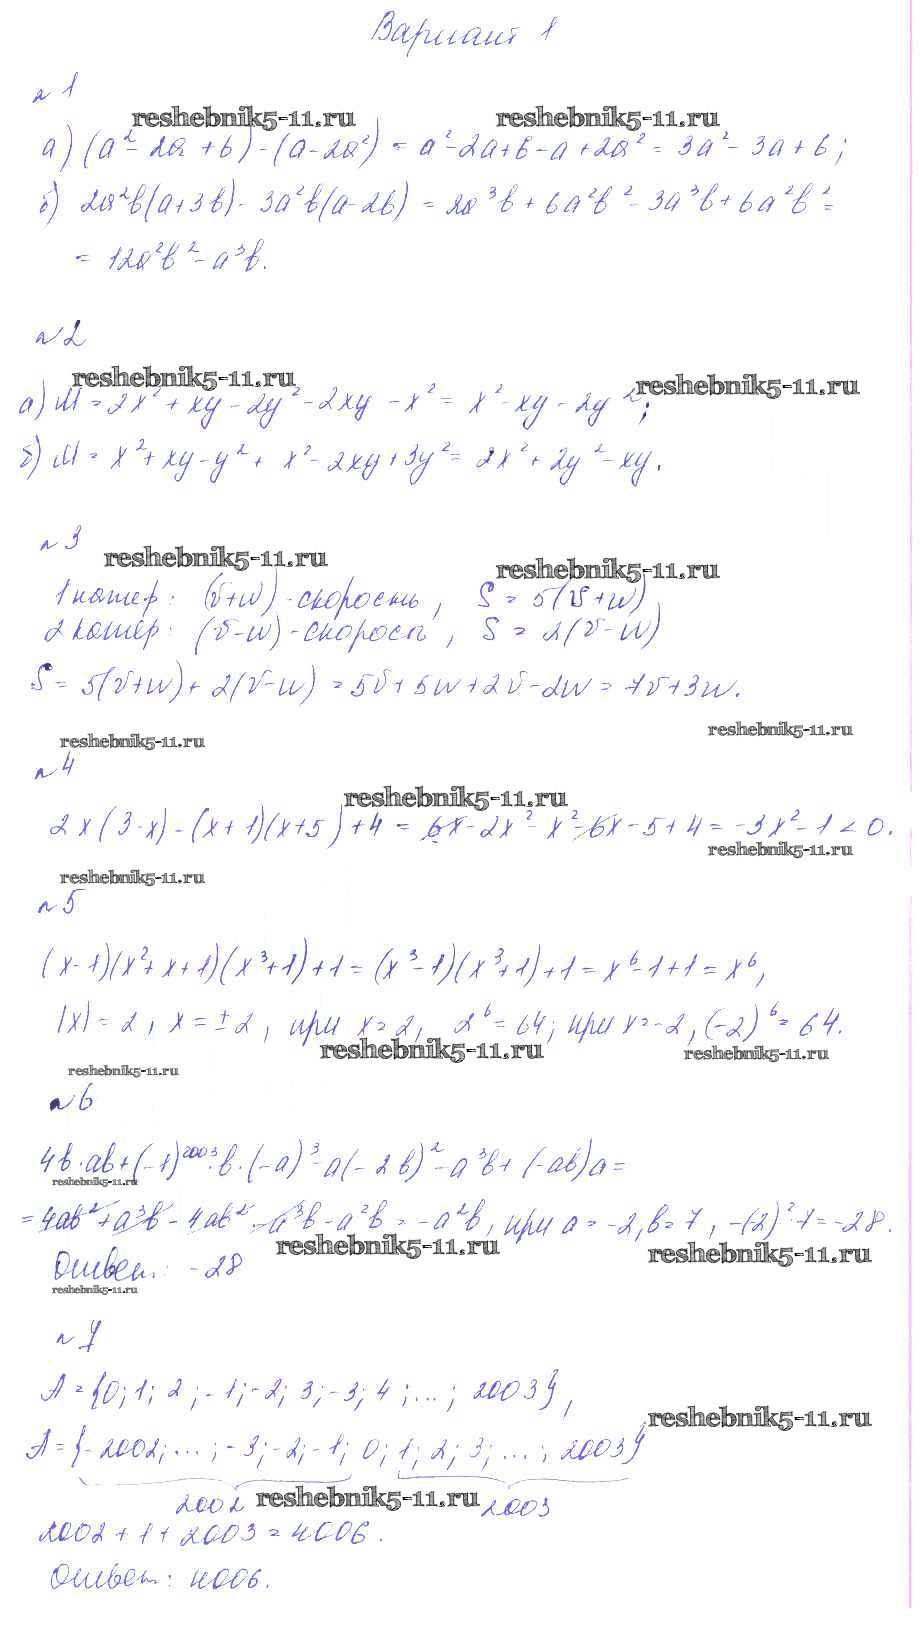 Вариант 1
№1
reshebnik5-11.ru reshebnik5-11.ru
а) (a² - 2a + b) - (a - 2a²) = a² - 2a + b - a + 2a² = 3a² - 3a + b;
б) 2a²b(a+3b) - 3a²b(a-2b) = 2a³b + 6a²b² - 3a³b + 6a²b² =
= 12a²b² - a³b.
№2
reshebnik5-11.ru reshebnik5-11.ru
а) M = 2x² + xy - 2y² - 2xy - x² = x² - xy - 2y²;
б) M = x² + xy - y² + x² - 2xy + 3y² = 2x² + 2y² - xy.
№3
reshebnik5-11.ru reshebnik5-11.ru
1 катер: (v+w) - скорость, S = 5(v+w)
2 катер: (v-w) - скорость, S = 2(v-w)
S = 5(v+w) + 2(v-w) = 5v + 5w + 2v - 2w = 7v + 3w.
reshebnik5-11.ru reshebnik5-11.ru
№4
reshebnik5-11.ru
2x(3-x) - (x+1)(x+5) + 4 = 6x - 2x² - x² - 6x - 5 + 4 = -3x² - 1 < 0.
reshebnik5-11.ru reshebnik5-11.ru
№5
(x-1)(x²+x+1)(x³+1)+1 = (x³-1)(x³+1)+1 = x⁶-1+1 = x⁶,
|x| = 2, x = ±2, при x=2, 2⁶ = 64; при x=-2, (-2)⁶ = 64.
reshebnik5-11.ru reshebnik5-11.ru
reshebnik5-11.ru
№6
4b·ab + (-1)²⁰⁰³·b·(-a)³ - a(-2b)² - a³b + (-ab)a =
reshebnik5-11.ru
= 4ab² + a³b - 4ab² - a³b - a²b = -a²b, при a = -2, b = 7, -(-2)²·7 = -28.
reshebnik5-11.ru reshebnik5-11.ru
Ответ: -28
reshebnik5-11.ru
№7
A = {0; 1; 2; -1; -2; 3; -3; 4; ...; 2003},
reshebnik5-11.ru
A = {-2002; ...; -3; -2; -1; 0; 1; 2; 3; ...; 2003}
2002 reshebnik5-11.ru 2003
2002 + 1 + 2003 = 4006.
Ответ: 4006.